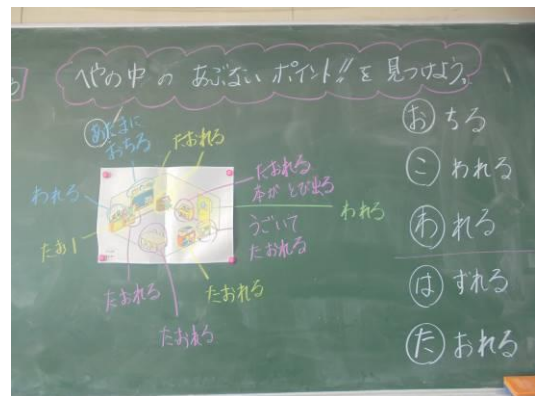 へやの中の あぶない ポイント!! を 見つけよう。
あたまに
おちる
たおれる
われる
たお
たおれる
本が とび出る
うごいて
たおれる
われる
たおれる
たおれる
たおれる
おちる
こわれる
われる
はずれる
たおれる